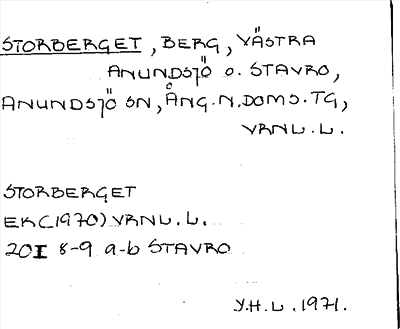 STORBERGET, BERG, VÄSTRA
ANUNDSJÖ O. STAVRO,
ANUNDSJÖ SN, ÅNG.N.DOMS.TG,
VRNL.L.
STORBERGET
EK(1970) VRNL.L.
20I 8-9 a-b STAVRO
Y.H.L. 1971.